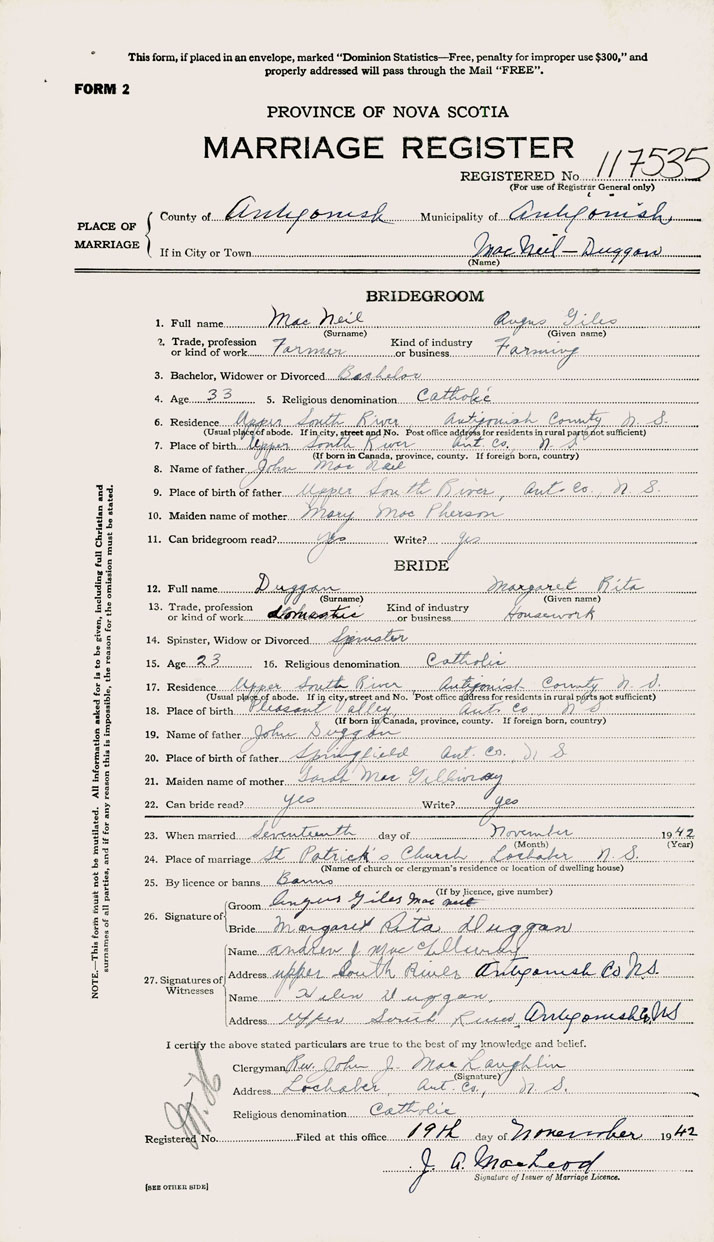 This form, if placed in an envelope, marked "Dominion Statistics—Free, penalty for improper use $300," and
properly addressed will pass through the Mail "FREE".
FORM 2
PROVINCE OF NOVA SCOTIA
MARRIAGE REGISTER
REGISTERED No. 117535
(For use of Registrar General only)
PLACE OF MARRIAGE
County of Antigonish Municipality of Antigonish
If in City or Town MacNeil - Duggan
(Name)
BRIDEGROOM
1. Full name Mac Neil Angus Giles
(Surname) (Given name)
2. Trade, profession or kind of work Farmer Kind of industry or business Farming
3. Bachelor, Widower or Divorced Bachelor
4. Age 33 5. Religious denomination Catholic
6. Residence Upper South River Antigonish County N. S.
(Usual place of abode. If in city, street and No. Post office address for residents in rural parts not sufficient)
7. Place of birth Upper South River Ant Co, N. S.
(If born in Canada, province, county. If foreign born, country)
8. Name of father John Mac Neil
9. Place of birth of father Upper South River, Ant. Co, N. S.
10. Maiden name of mother Mary Mac Pherson
11. Can bridegroom read? yes Write? yes
BRIDE
12. Full name Duggan Margaret Rita
(Surname) (Given name)
13. Trade, profession or kind of work domestic Kind of industry or business Housework
14. Spinster, Widow or Divorced Spinster
15. Age 23 16. Religious denomination Catholic
17. Residence Upper South River Antigonish County N. S.
(Usual place of abode. If in city, street and No. Post office address for residents in rural parts not sufficient)
18. Place of birth Pleasant Valley, Ant. Co N S
(If born in Canada, province, county. If foreign born, country)
19. Name of father John Duggan
20. Place of birth of father Springfield Ant. Co. N. S
21. Maiden name of mother Sarah Mac Gillivray
22. Can bride read? yes Write? yes
23. When married Seventeenth day of November 1942
(Month) (Year)
24. Place of marriage St Patrick's Church, Lochaber N. S.
(Name of church or clergyman's residence or location of dwelling house)
25. By licence or banns Banns
(If by licence, give number)
26. Signature of
Groom Angus Giles Mac neil
Bride Margaret Rita Duggan
27. Signatures of Witnesses
Name Andrew J MacGillivray
Address upper South River Antigonish Co N.S.
Name Helen Duggan.
Address Upper South River, Antigonish Co NS
I certify the above stated particulars are true to the best of my knowledge and belief.
Clergyman Rev. John J. MacLaughlin
(Signature)
Address Lochaber, Ant. Co., N. S.
Religious denomination Catholic
Registered No. Filed at this office 19th day of November 1942
J. A. MacLeod
Signature of Issuer of Marriage Licence.
[SEE OTHER SIDE]
NOTE.—This form must not be mutilated. All information asked for is to be given, including full Christian and
surnames of all parties, and if for any reason this is impossible, the reason for the omission must be stated.